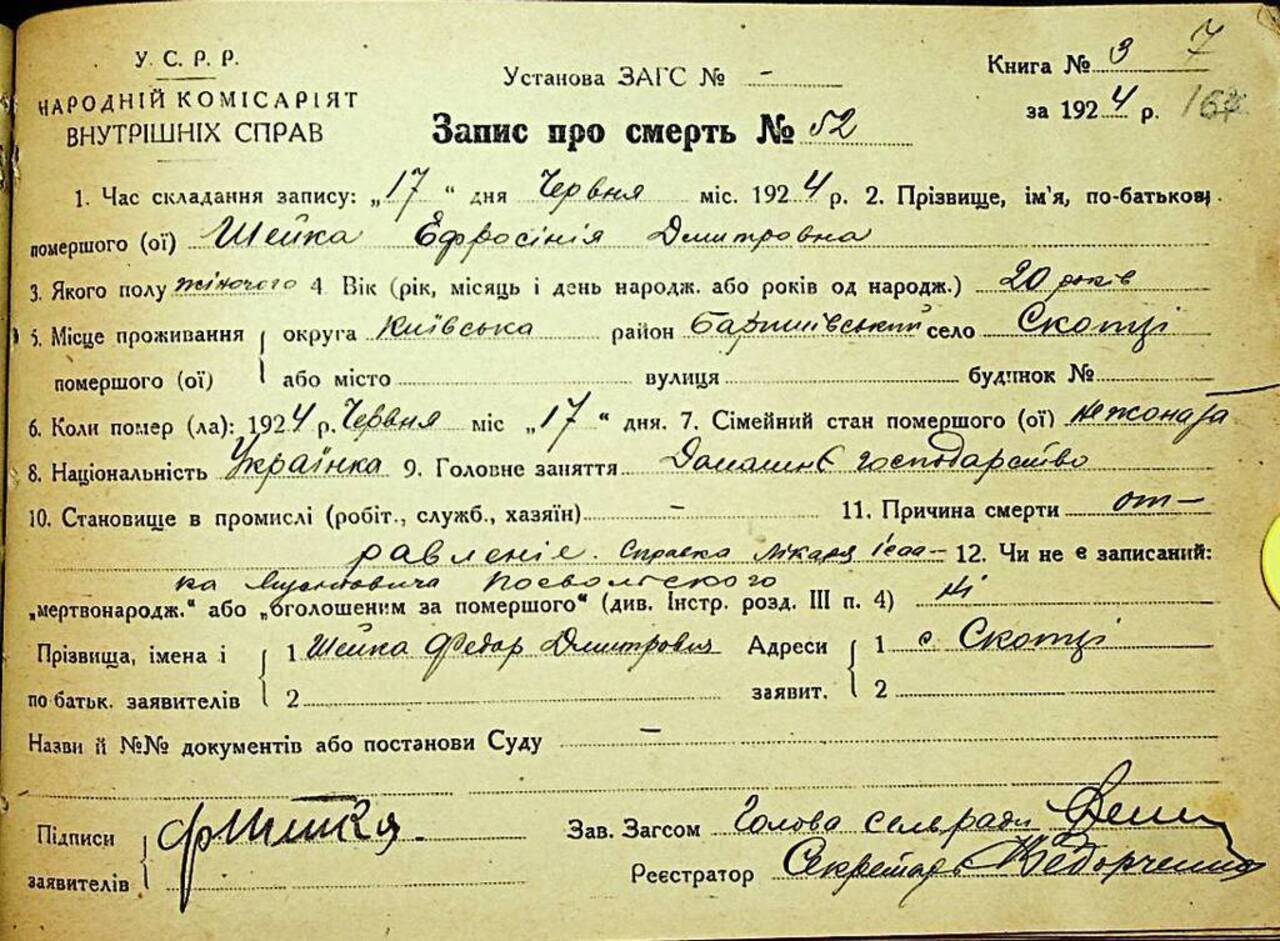 У. С. Р. Р.
НАРОДНІЙ КОМІСАРІЯТ
ВНУТРІШНІХ СПРАВ
Установа ЗАГС № -
Книга № 3 7
за 1924 р.
Запис про смерть № 52
1. Час складання запису: „17“ дня Червня міс. 1924 р. 2. Прізвище, ім'я, по-батькові
помершого (ої) Шейка Ефросінія Дмитровна
3. Якого полу жіночого 4. Вік (рік, місяць і день народж. або років од народж.) 20 років
5. Місце проживання округа Київська район Баришівський село Скопці
помершого (ої) або місто вулиця будинок №
6. Коли помер (ла): 1924 р. Червня міс „17“ дня. 7. Сімейний стан помершого (ої) нежоната
8. Національність Українка 9. Головне заняття Домашнє господарство
10. Становище в промислі (робіт., служб., хазяїн) - 11. Причина смерти от-
равленіе. Справка лікаря Ісаа- 12. Чи не є записаний:
ка
„мертвонародж.“ або „оголошеним за помершого“ (див. Інстр. розд. III п. 4) Ні
Прізвища, імена і 1 Шейка Федор Дмитрович Адреси 1 с. Скопці
по батьк. заявителів 2 заявит. 2
Назви й №№ документів або постанови Суду -
Підписи Зав. Загсом Голова сельради
заявителів Реєстратор Секретарь Федорченко